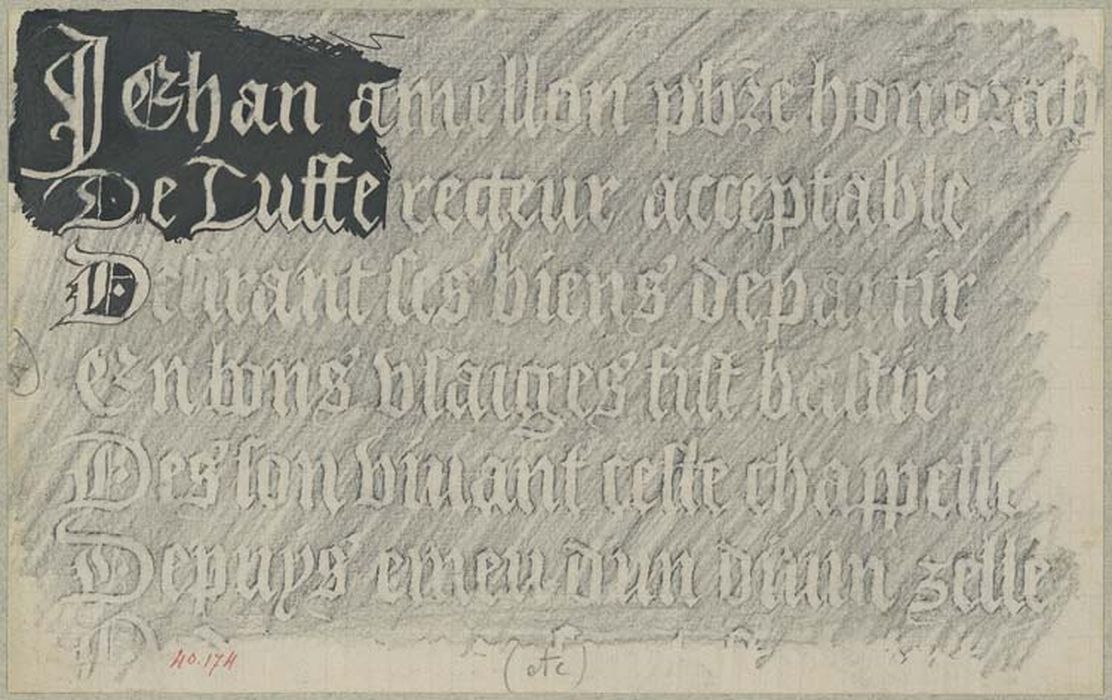 JEhan amellon pbre honorab
De Tuffe recteur acceptable
Desirant ses biens departir
En bons vsaiges fist bastir
Des son viuant ceste chappelle
Depuys emeu dun diuin zelle
40.174
(etc)